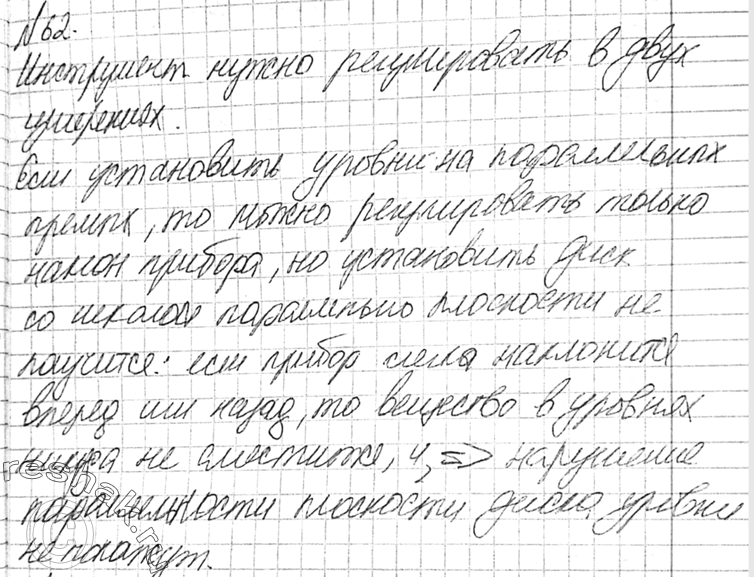 №62.
Инструмент нужно регулировать в двух
измерениях.
Если установить уровни на параллельных
прямых, то можно регулировать только
наклон прибора, но установить диск
со шкалой параллельно плоскости не
получится: если прибор слегка наклонится
вперед или назад, то вещество в уровнях
никуда не сместится, и, => нарушение
параллельности плоскости диска уровни
не покажут.
reshak.ru